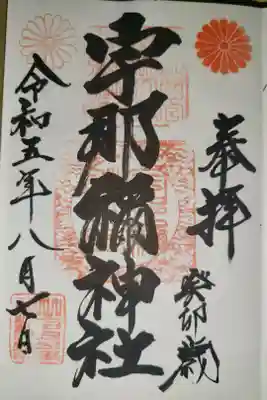 奉拝
癸卯歳
宇那禰神社
令和五年八月七日